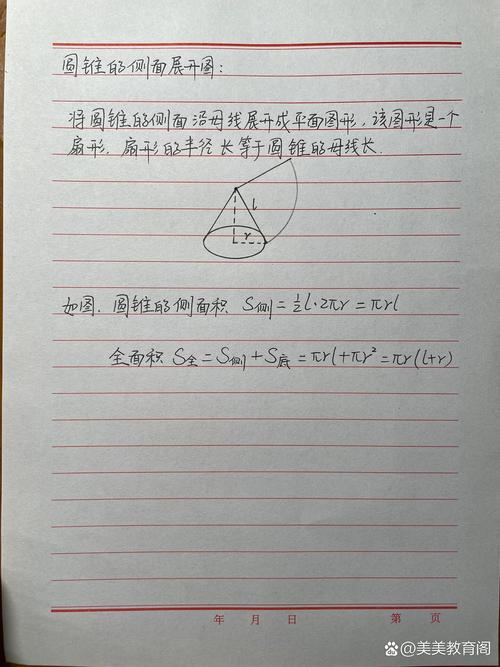 圆锥的侧面展开图：
将圆锥的侧面沿母线展开成平面图形，该图形是一个
扇形，扇形的半径长等于圆锥的母线长.
l
r
如图，圆锥的侧面积 S侧=½l·2πr=πrl
全面积 S全=S侧+S底=πrl+πr²=πr(l+r)
年 月 日 第 页
@美美教育阁